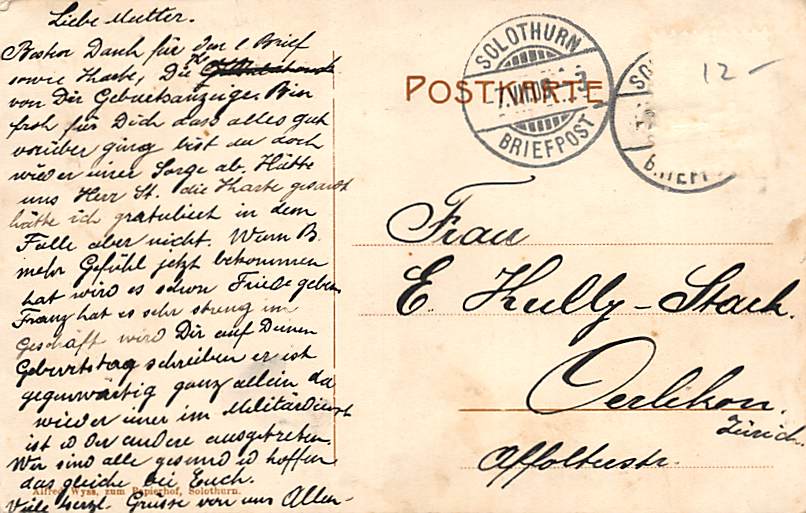 Liebe Mutter.
Besten Dank für den l. Brief
sowie Karte, Die
von Dir Geburtsanzeige. Bin
froh für Dich dass alles gut
vorüber ging bist du doch
wieder einer Sorge ab. Hätte
uns Herr St. die Karte gesandt
hätte ich gratuliert in dem
Falle aber nicht. Wenn B.
mehr Gefühl jetzt bekommen
hat wird es schon Friede geben
Franz hat es sehr streng im
Geschäft wird Dir auf Deinen
Geburtstag schreiben er ist
gegenwärtig ganz allein da
wieder einer im Militärdienst
ist u der andere ausgetreten.
Wir sind alle gesund u hoffen
das gleiche bei Euch.
Viele herzl. Grüsse von uns Allen-
Alfred Wyss, zum Papierhof, Solothurn.
POSTKARTE
SOLOTHURN
BRIEFPOST
12 -
Frau
E. Kully-Stark.
Oerlikon.
Zürich.
Affolternstr.